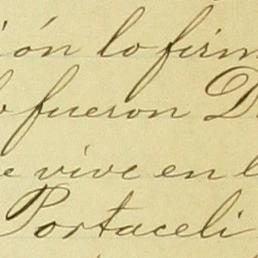 ión lo firm
lo fueron D
e vive en l
Portaceli